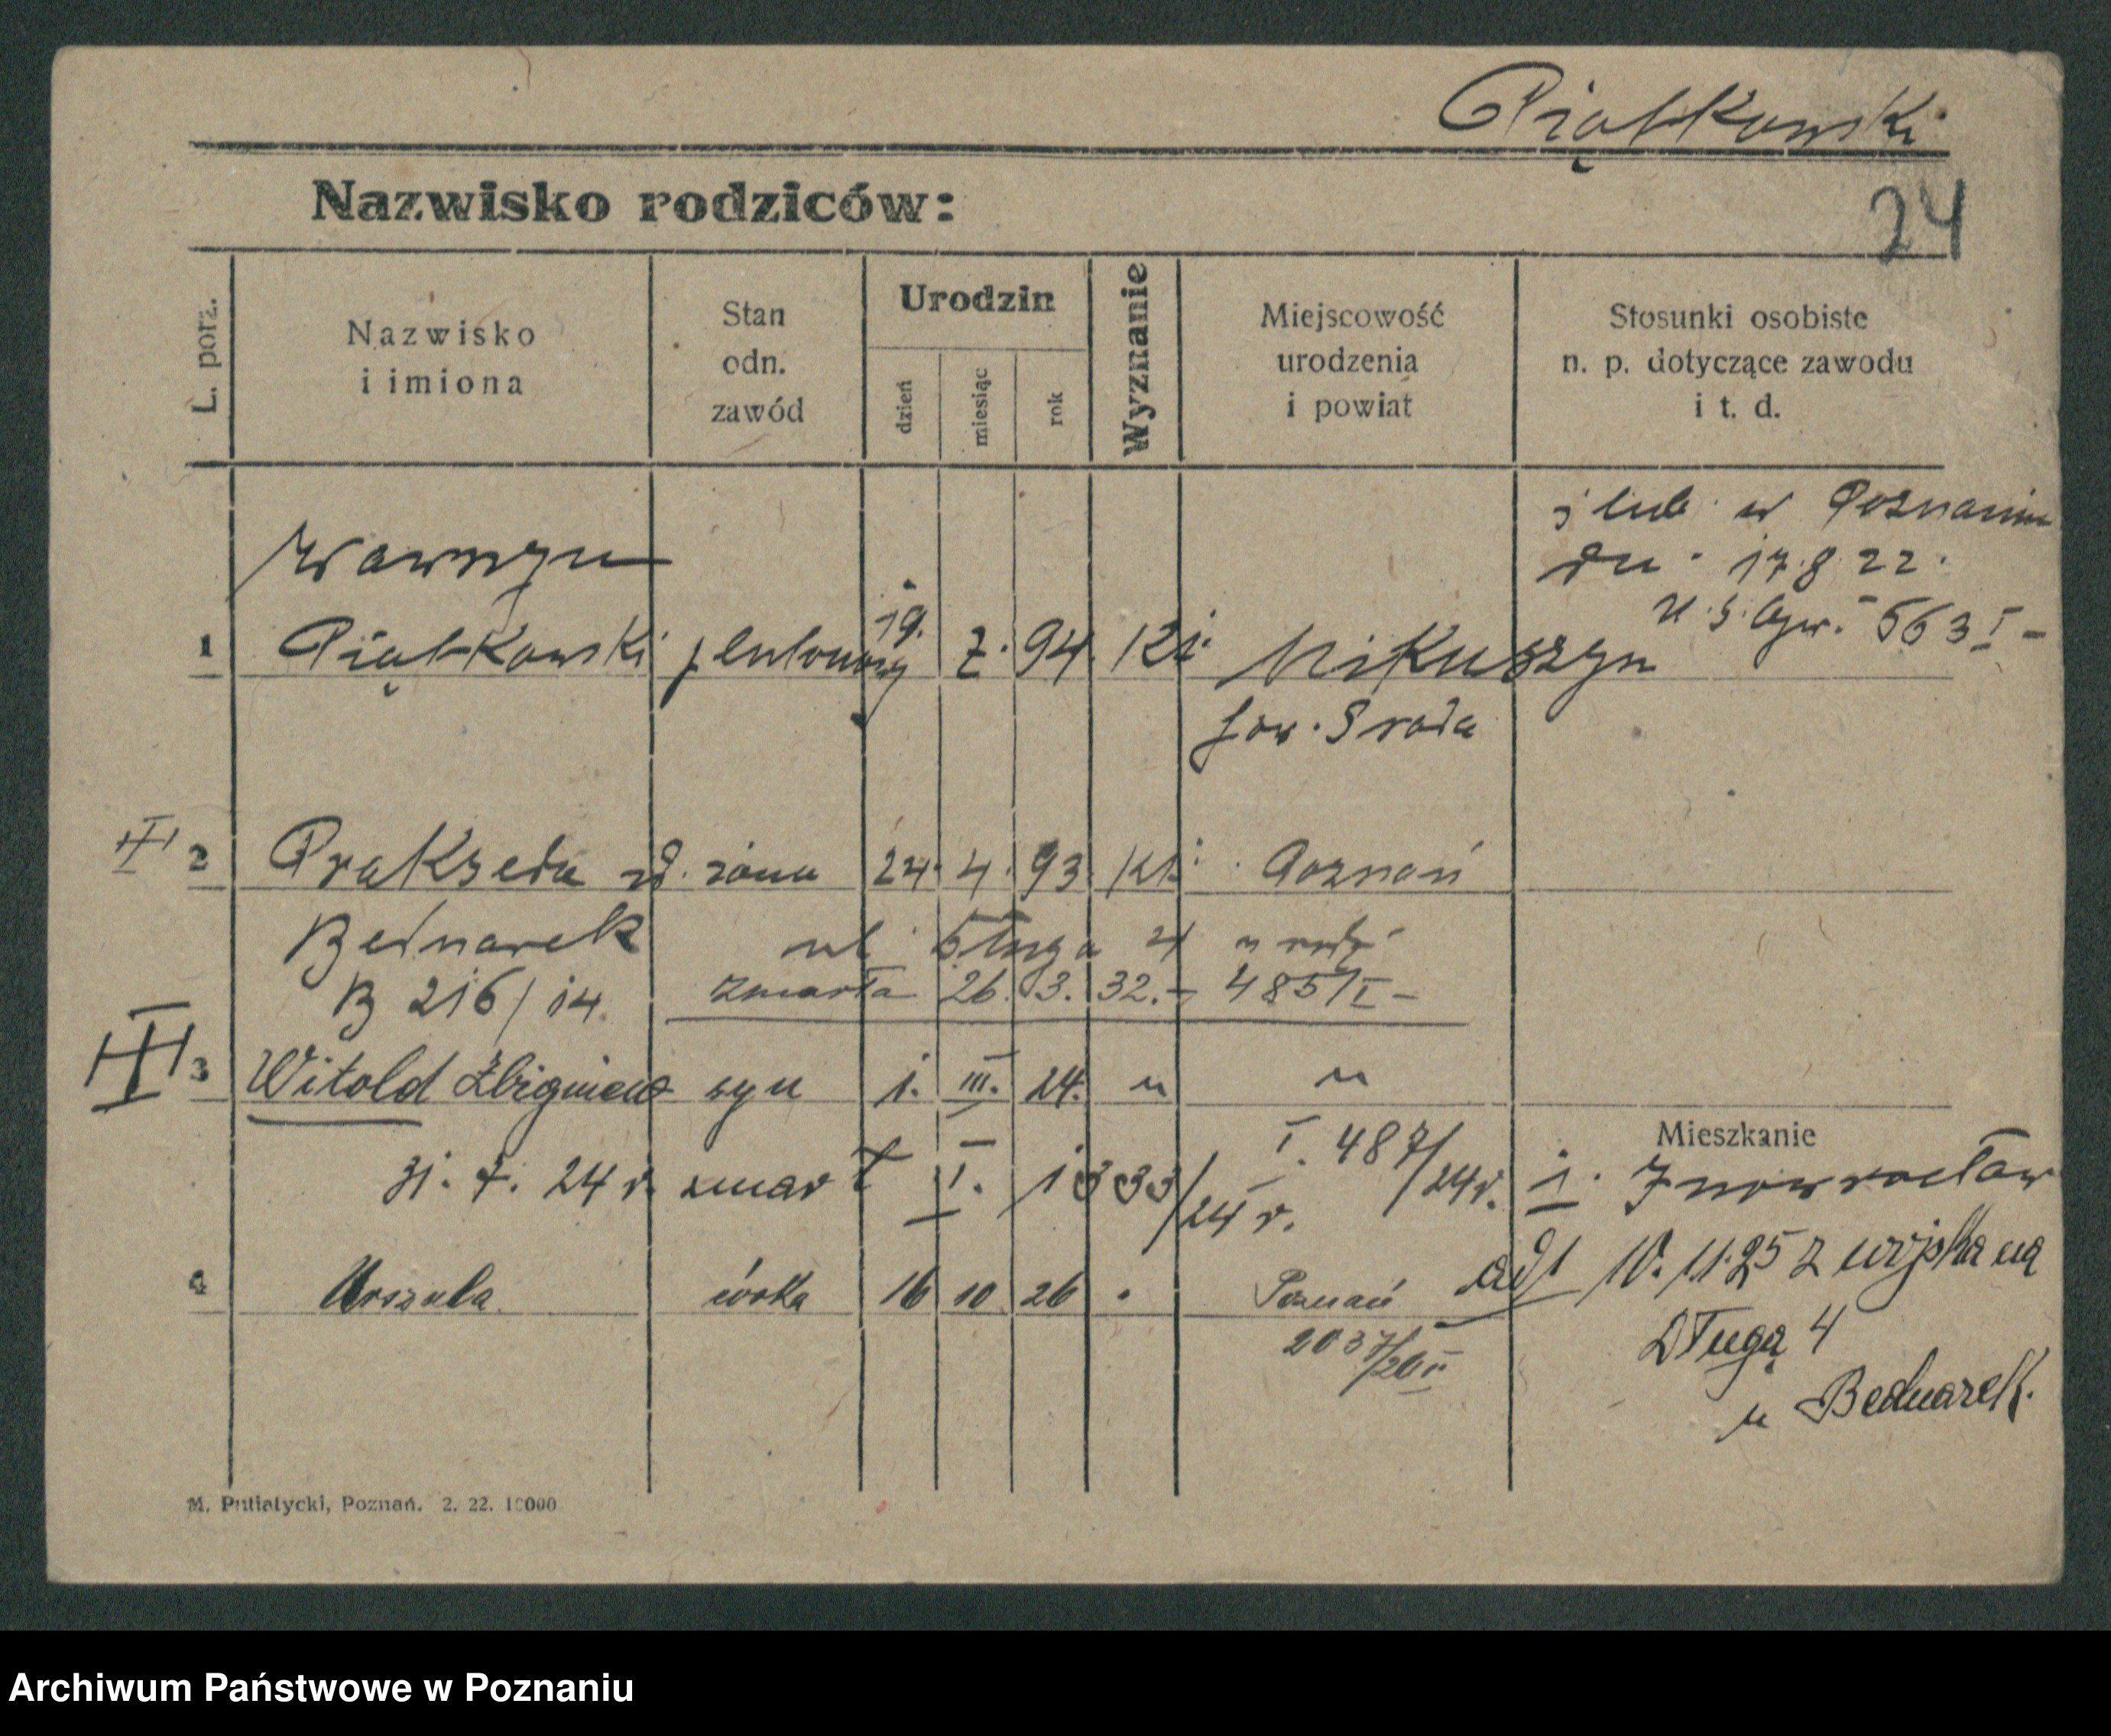 Piątkowski
Nazwisko rodziców:
24
L. porz.
Nazwisko
i imiona
Stan
odn.
zawód
Urodzin
dzień
miesiąc
rok
Wyznanie
Miejscowość
urodzenia
i powiat
Stosunki osobiste
n. p. dotyczące zawodu
i t. d.
ślub w Poznaniu
dn. 17.8.22.
563 I -
Wawrzyn
1 Piątkowski plutonowy 19. 7. 94. Kt. Nikuszyn
pow. Sroda
III 2 Prakseda zd. żona 24. 4. 93. kt. Poznań
Bednarek ul. Długa 4 u rodz.
B 216/14. zmarła 26. 3. 32. - 485/I -
III 3 Witold Zbigniew syn 1. III. 24. " "
31. 7. 24 r. zmarł I. 1333/24 r. I. 487/24 r.
Mieszkanie
1. Inowrocław
4 Urszula córka 16 10 26 . Poznań
2037/26 II
od 10.11.25 z wojska na
Długą 4
u Bednarek.
M. Putiatycki, Poznań. 2. 22. 10000
Archiwum Państwowe w Poznaniu